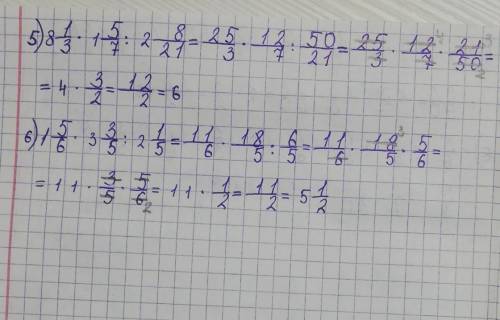 5) 8 1/3 · 1 5/7 : 2 8/21 = 25/3 · 12/7 : 50/21 = 25/3 · 12/7 · 21/50 =
= 4 · 3/2 = 12/2 = 6
6) 1 5/6 · 3 3/5 : 2 1/5 = 11/6 · 18/5 : 6/5 = 11/6 · 18/5 · 5/6 =
= 11 · 3/5 · 5/6 = 11 · 1/2 = 11/2 = 5 1/2